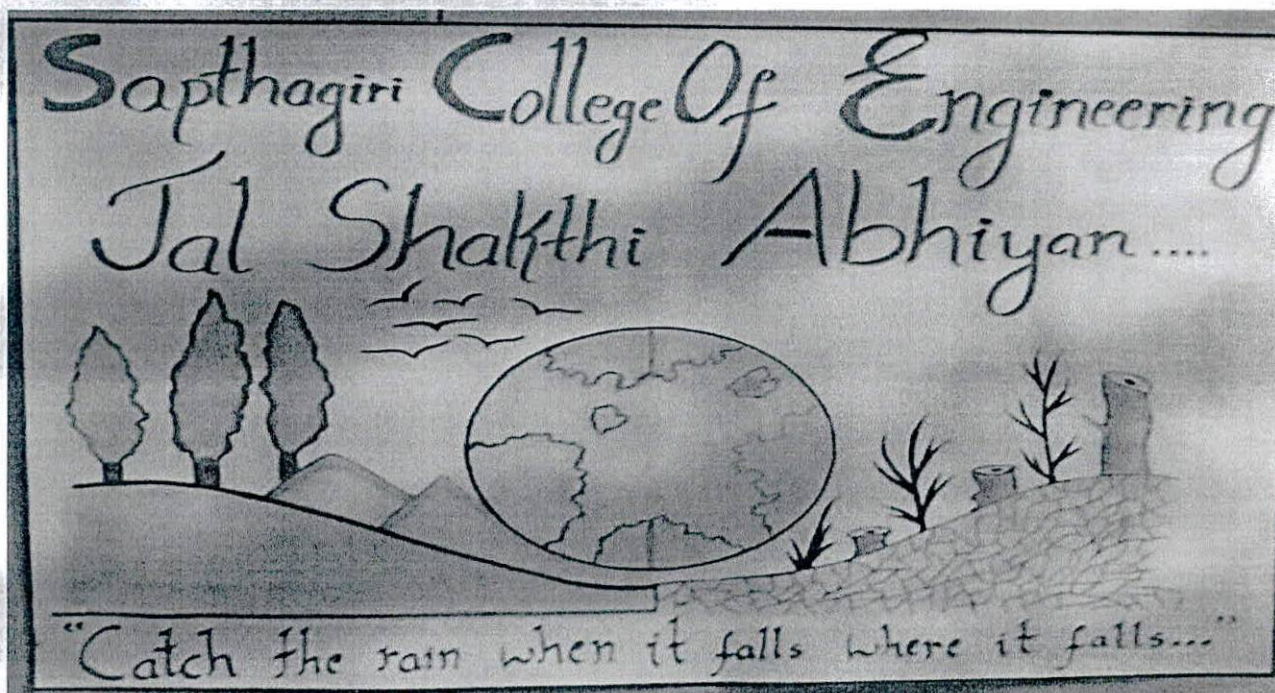 Sapthagiri College Of Engineering
Jal Shakthi Abhiyan....
"Catch the rain when it falls where it falls..."